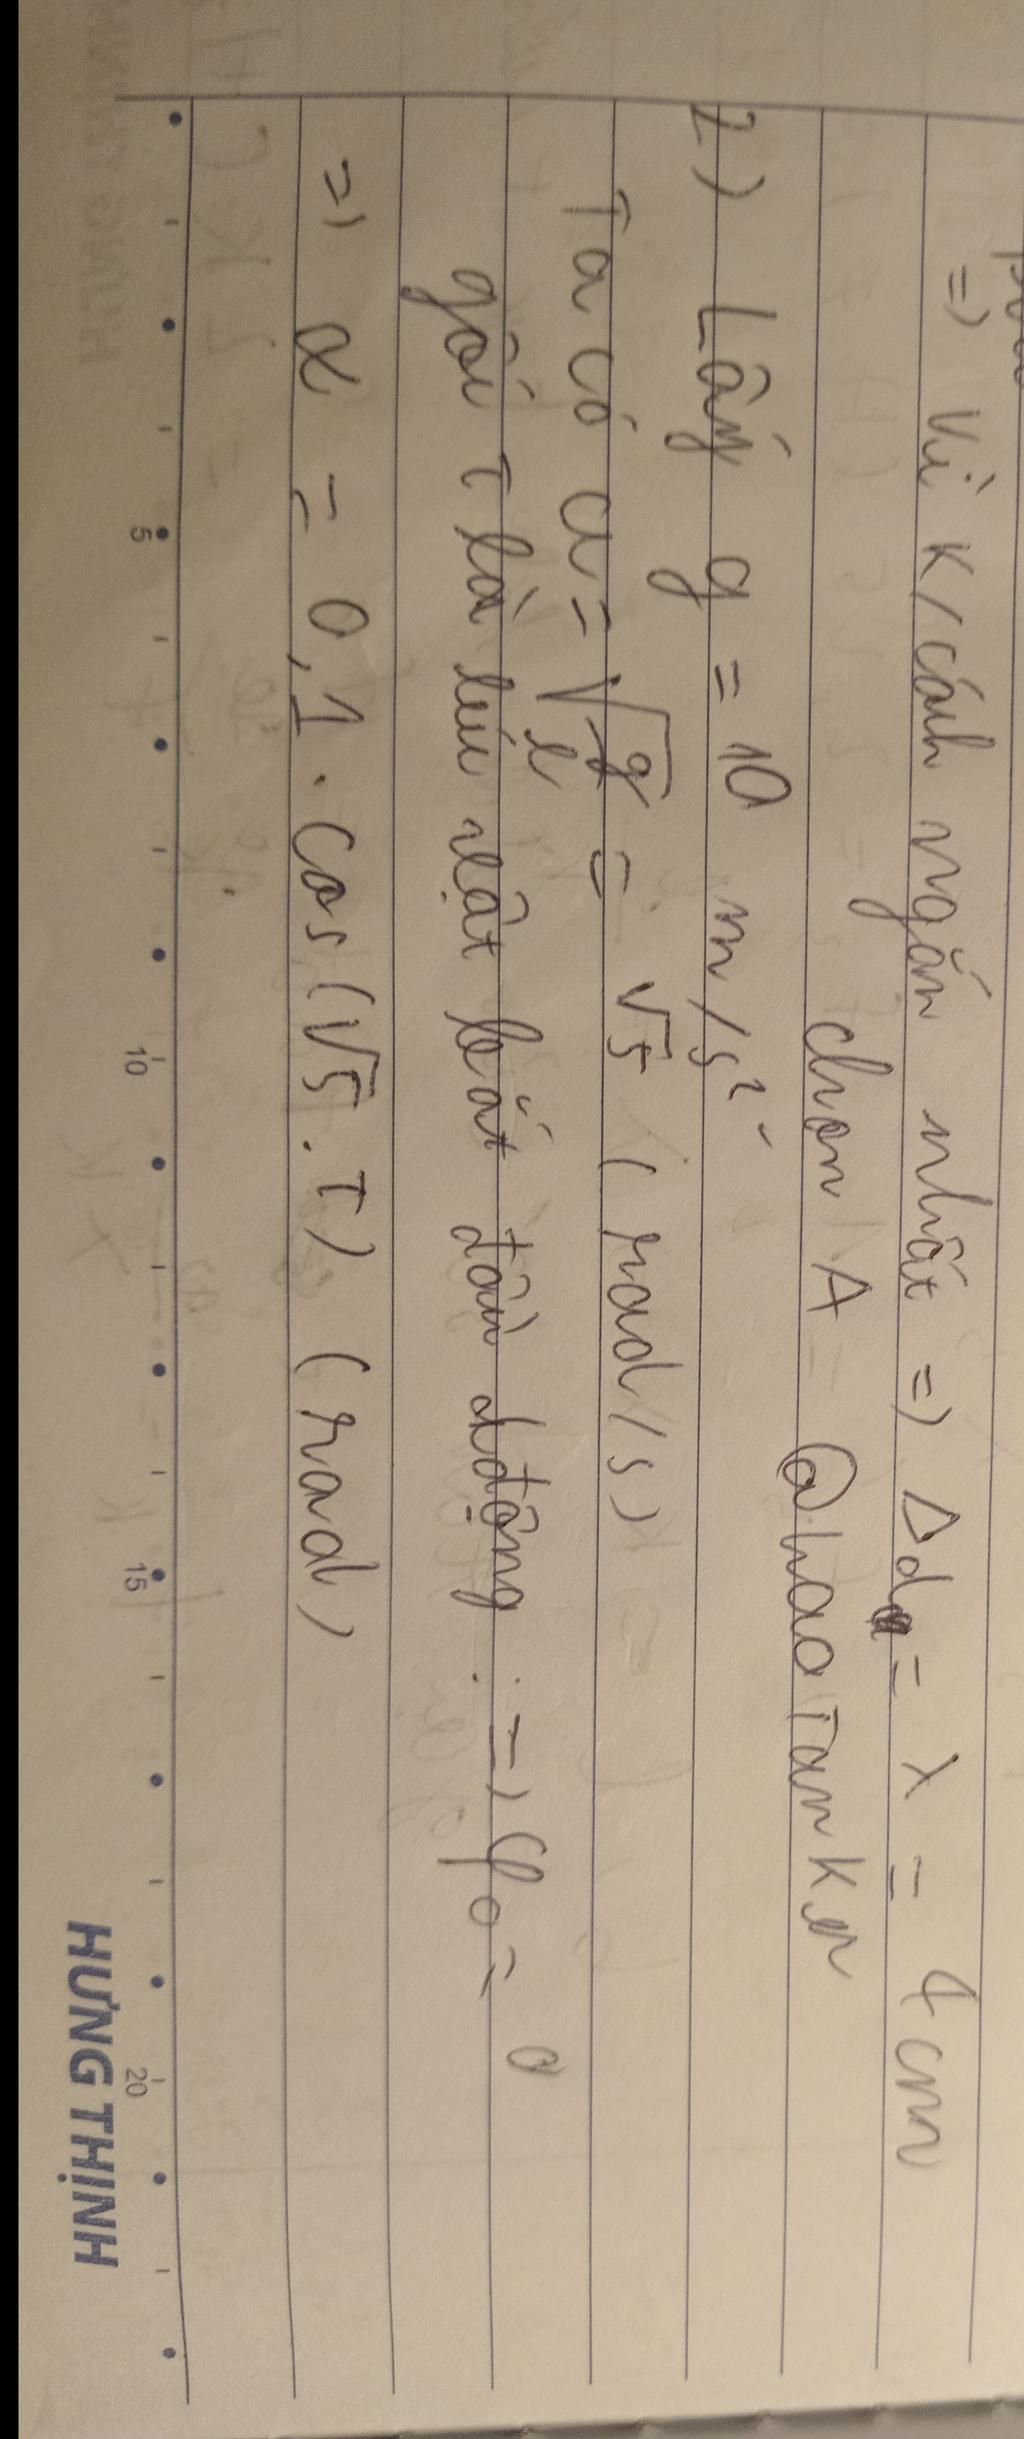 =) Vì k/cách ngắn nhất =) Δd = λ = 4 cm
chọn A @haoTanker
2) Lấy g = 10 m/s²
Ta có ω = √g/l = √5 (rad/s)
gốc T là lúc vật bắt đầu dđộng. =) φ0 = 0
=) α = 0,1 . cos (√5 . T) (rad)
5 10 15 20
HƯNG THỊNH